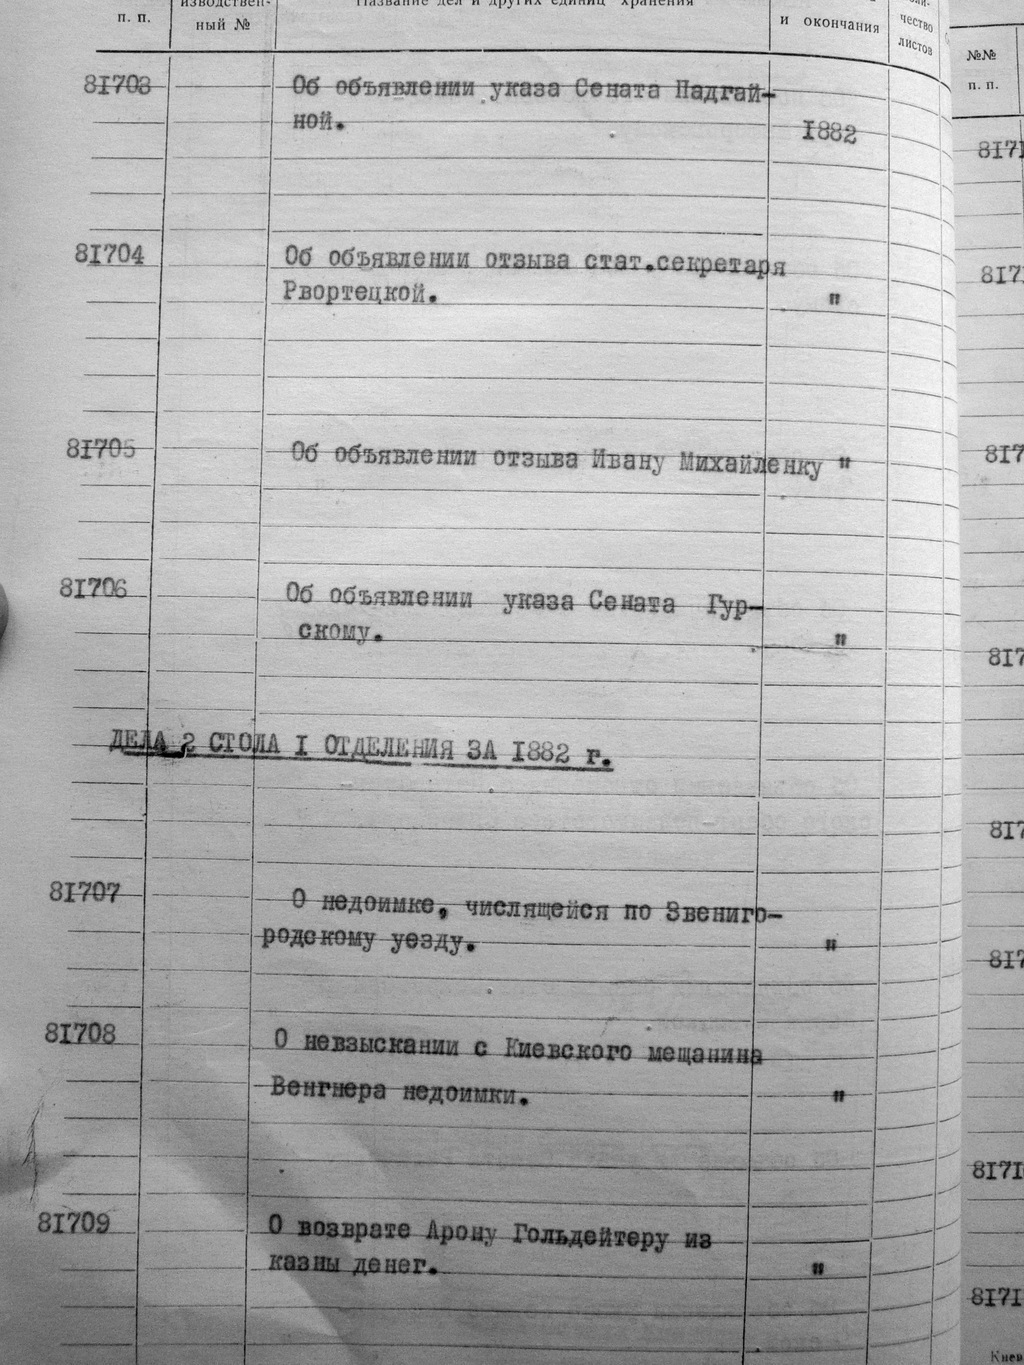 п. п.
изводствен-
ный №
Название дел и других единиц хранения
и окончания
чество
листов
№№
п. п.
81703
Об объявлении указа Сената Надгай-
ной.
1882
81704
Об объявлении отзыва стат.секретаря
Рвортецкой.
"
81705
Об объявлении отзыва Ивану Михайленку "
81706
Об объявлении указа Сената Гур-
скому.
"
ДЕЛА 2 СТОЛА I ОТДЕЛЕНИЯ ЗА 1882 г.
81707
О недоимке, числящейся по Звениго-
родскому уезду.
"
81708
О невзыскании с Киевского мещанина
Венгнера недоимки.
"
81709
О возврате Арону Гольдейтеру из
казны денег.
"